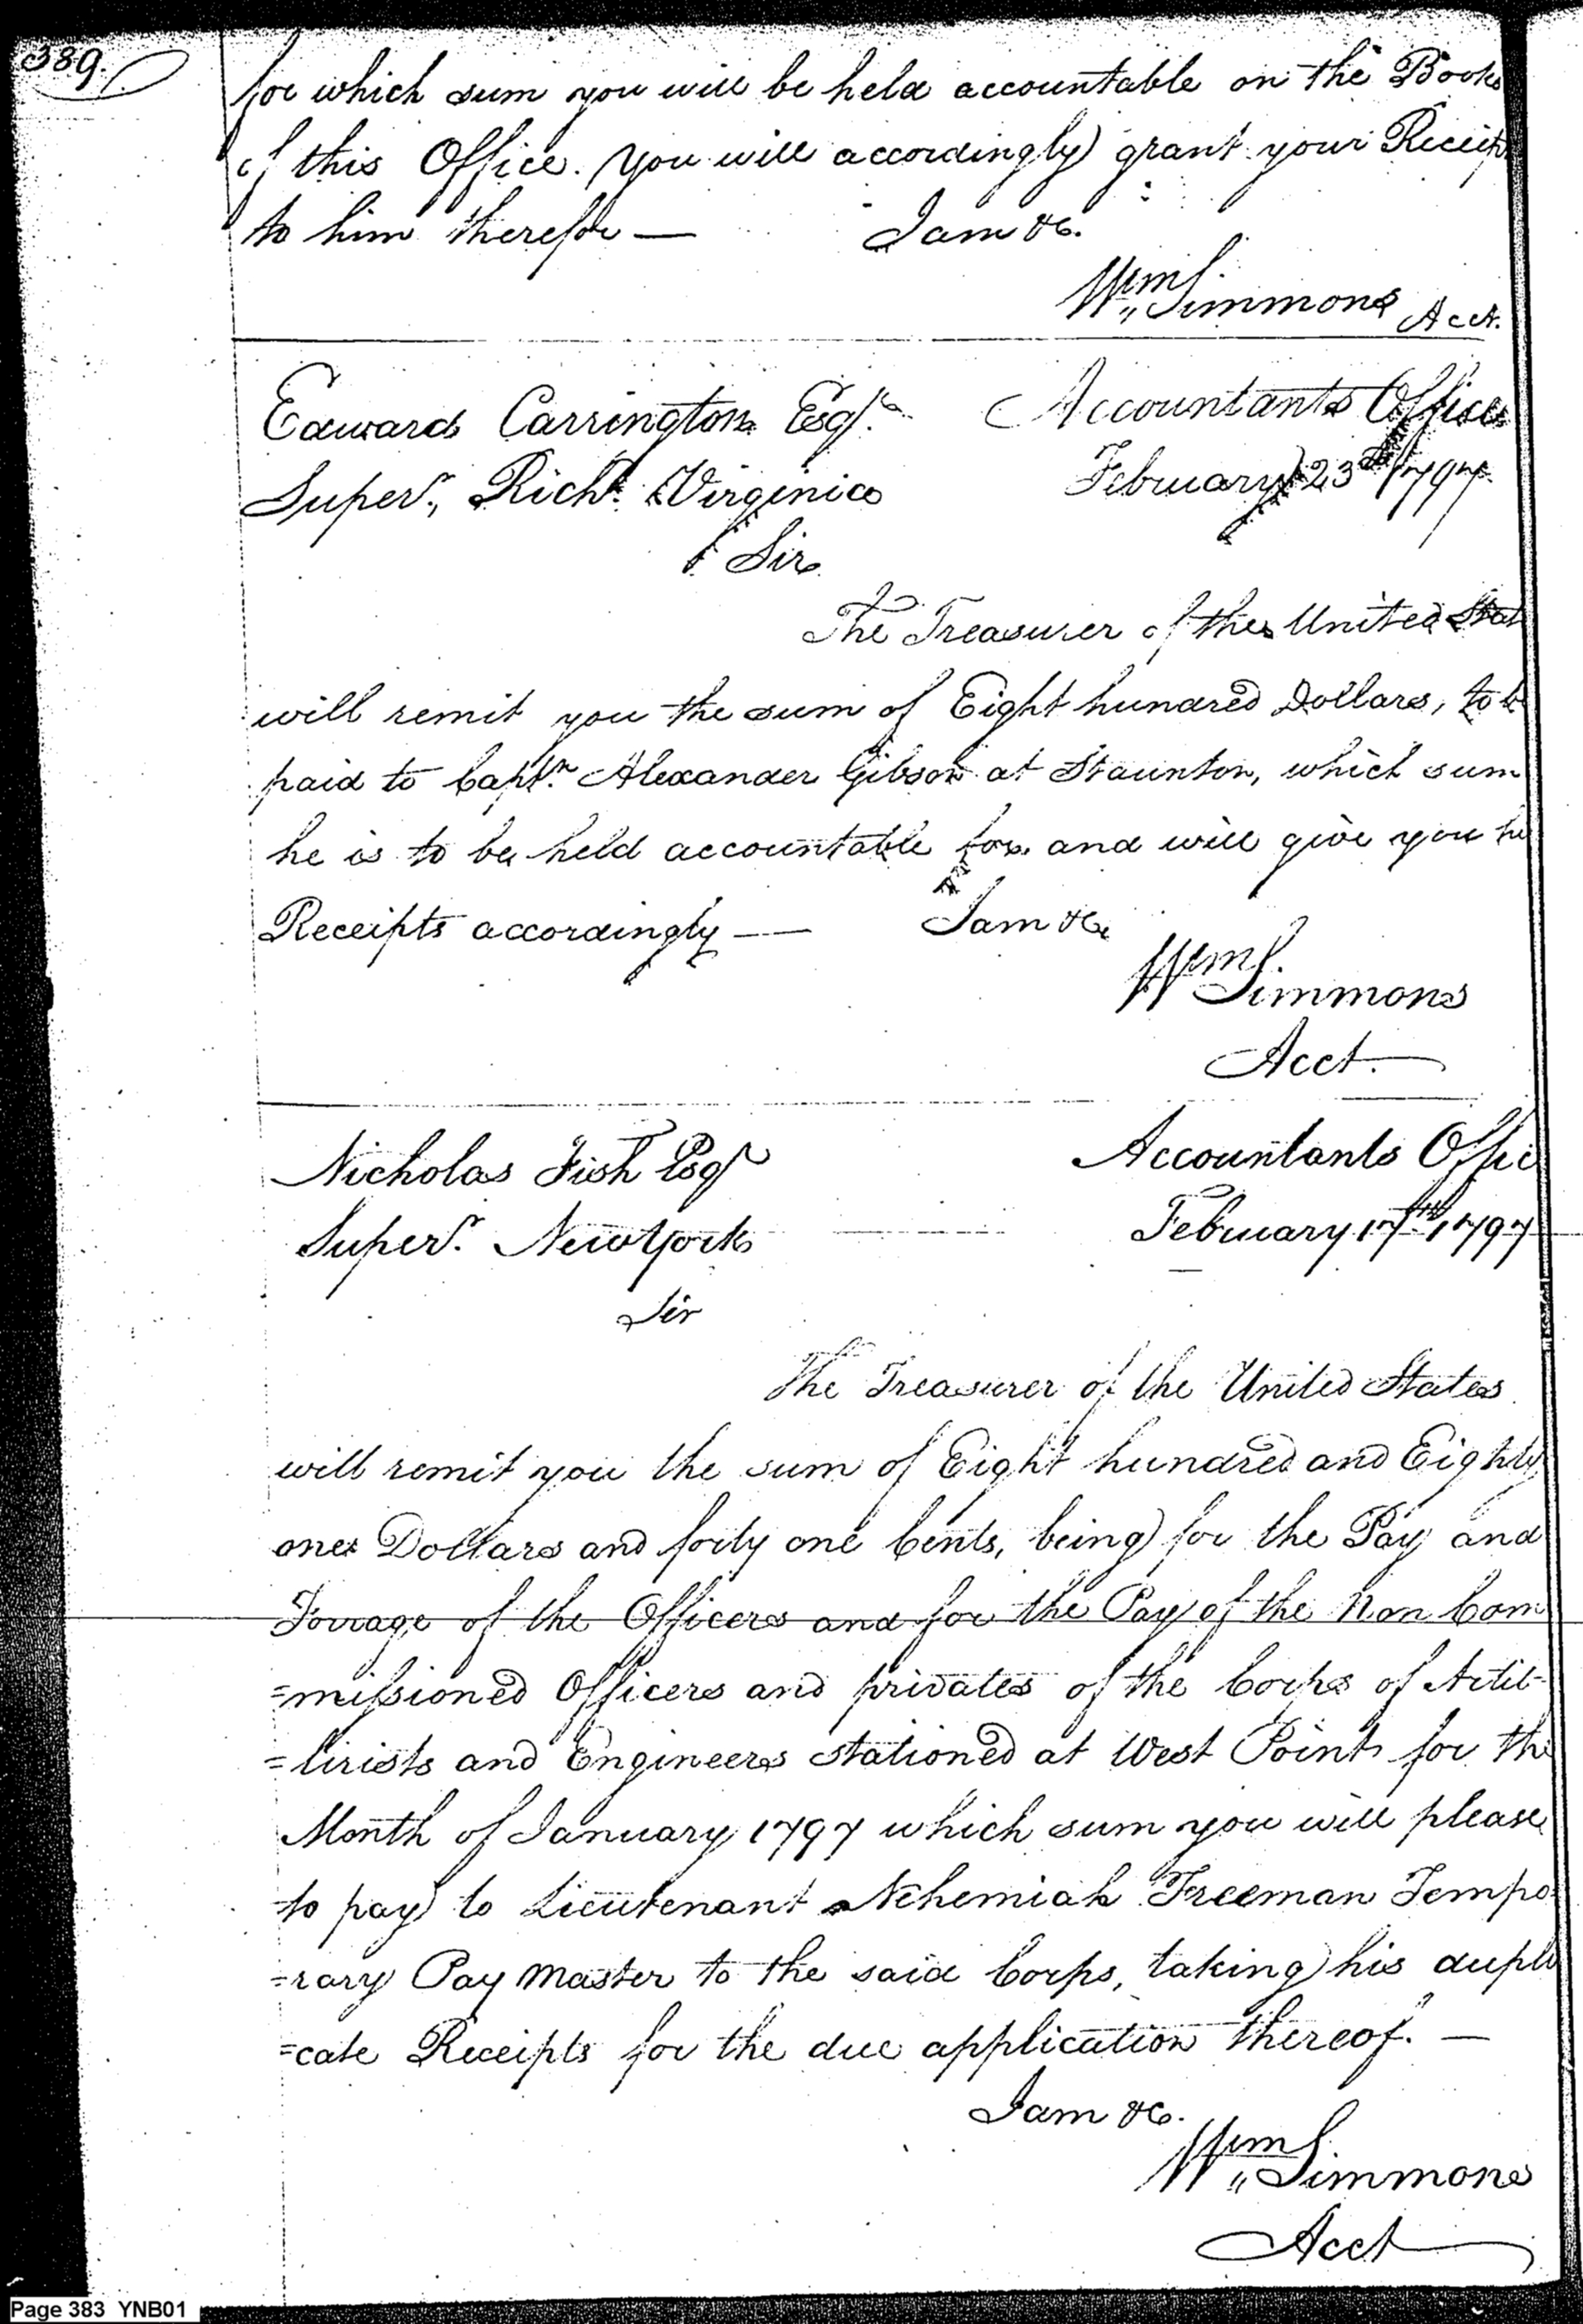 389.
for which sum you will be held accountable on the Books
of this Office. You will accordingly grant your Receipt
to him therefor — I am &c.
Wm Simmons Acct.
Edward Carrington Esqr. Accountants Office
Superr., Richd. Virginia February 23d 1797.
Sir
The Treasurer of the United Stat
will remit you the sum of Eight hundred Dollars, to be
paid to Captn. Alexander Gibson at Staunton, which sum
he is to be held accountable for and will give you his
Receipts accordingly — I am &c
Wm Simmons
Acct.
Nicholas Fish Esqr Accountants Offic
Superr. New York February 17th 1797
Sir
The Treasurer of the United States
will remit you the sum of Eight hundred and Eighty
one Dollars and forty one Cents, being for the Pay and
Forrage of the Officers and for the Pay of the Non Com
=missioned Officers and privates of the Corps of Artil-
=lirists and Engineers stationed at West Point for the
Month of January 1797 which sum you will please
to pay to Lieutenant Nehemiah Freeman Tempo
=rary Pay Master to the said Corps, taking his dupli
=cate Receipts for the due application thereof. —
I am &c.
Wm Simmons
Acct
Page 383 YNB01